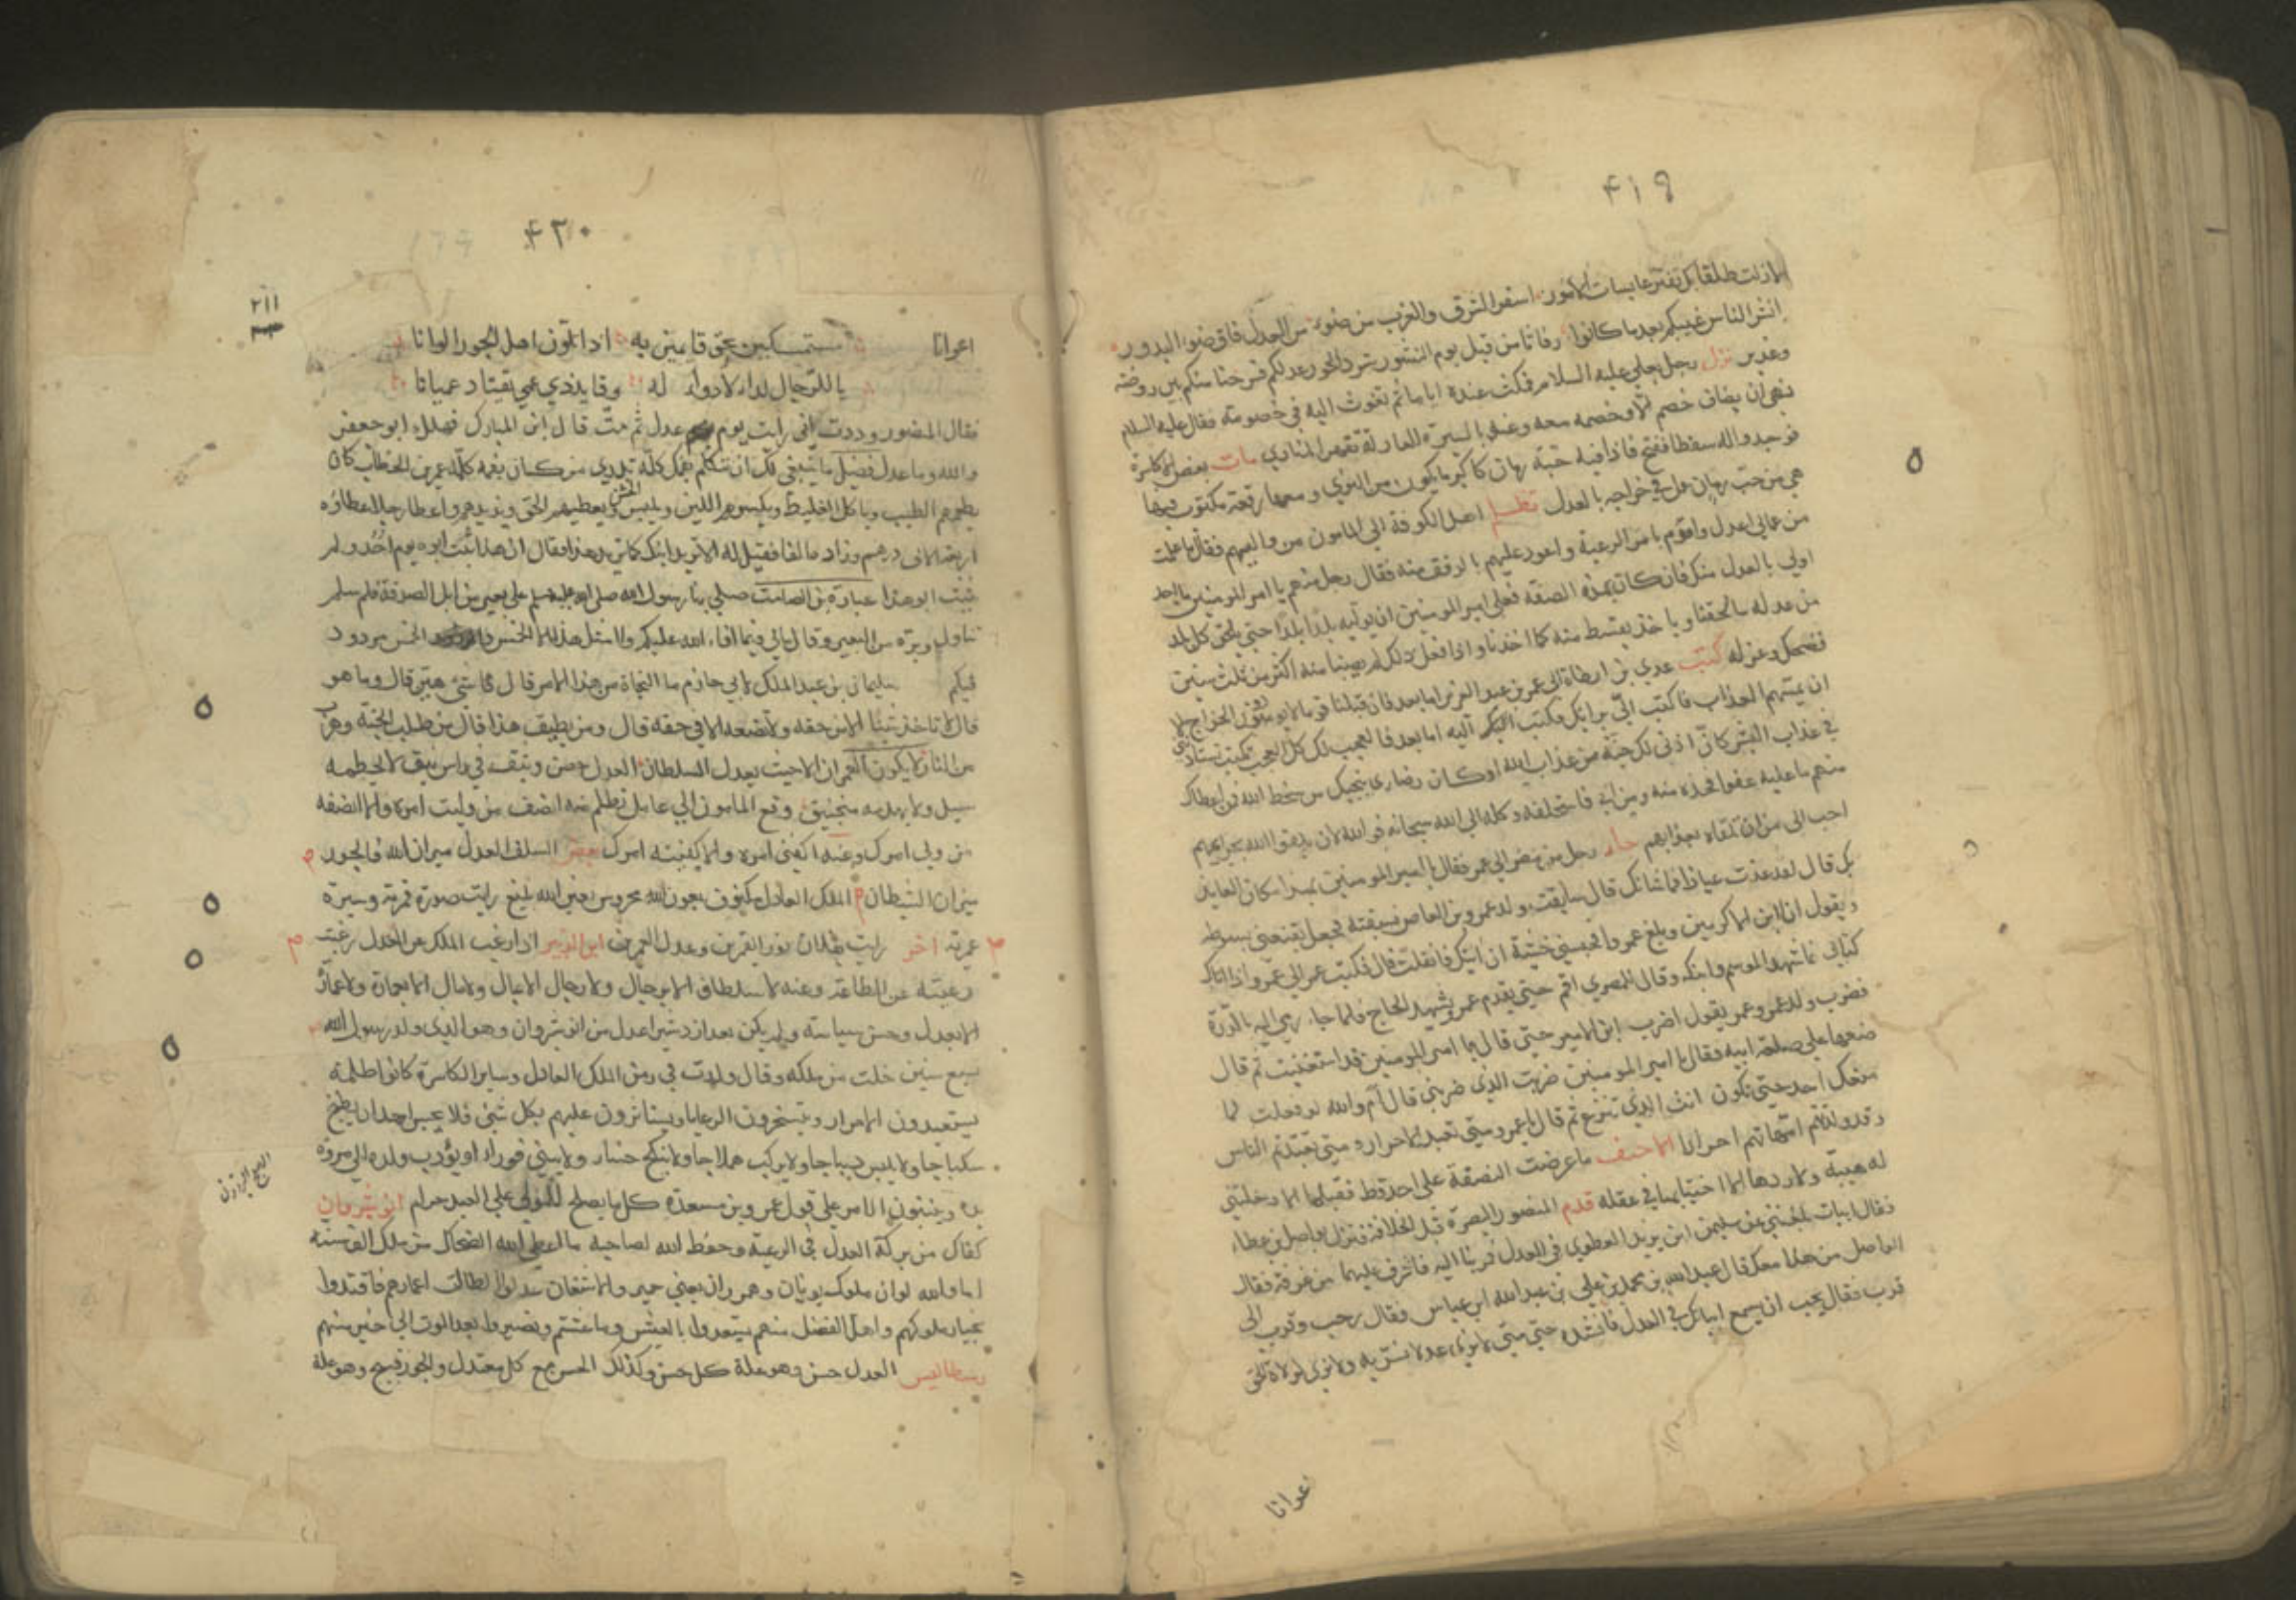 ٤١٩
لا زلت طلقا بل تفتر عابسات الامور اسفر الشرق والغرب من ضوء من العدل فاق ضوء البدور
انشر الناس غيثكم بعد ما كانوا رفاتا من قبل يوم النشور شرد الجور عدلكم فسرحنا منكم بين روضة
وغدير نزل رجل بعلي عليه السلام فمكث عنده اياما ثم تغوث اليه في خصومة فقال عليه السلام
نهى ان يضاف خصم الا وخصمه معه وعنه بالسيرة العادلة تقهر المناوي مات بعض الاكاسرة
فوجدوا له سفطا ففتح فاذا فيه حبة رمان كاكبر ما يكون من النوى ومعها رقعة مكتوب فيها
هي من حب رمان عمل في خراجه بالعدل تظلم اهل الكوفة الى المامون من واليهم فقال ما علمت
من عمالي اعدل واقوم بامر الرعية واعود عليهم بالرفق منه فقال رجل منهم يا امير المومنين ما احد
اولى بالعدل منك فان كان بهذه الصفة فعلى امير المومنين ان يوليه بلدا بلدا حتى يلحق كل بلد
من عدله ما لحقنا وياخذ بقسط منه كما اخذنا واذا فعل ذلك لم يصيبنا منه اكثر من ثلث سنين
فضحك وعزله كتب عدي بن ارطاة الى عمر بن عبد العزيز اما بعد فان قبلنا قوما لا يودون الخراج الا
ان يمسهم العذاب فاكتب الي برايك فكتب اليه اما بعد فالعجب لك كل العجب تكتب تستاذنني
في عذاب البشر كان اذني لك جنة من عذاب الله او كان رضاي ينجيك من سخط الله فمن اعطاك
منهم ما عليه عفوا فخذه منه ومن ابى فاستحلفه وكله الى الله سبحانه فوالله لان يلقوا الله بجرايمهم
احب الى من ان تلقاه بعذابهم جاء رجل من مصر الى عمر فقال يا امير المومنين هذا مكان العايذ
بك قال لقد عذت عياذا فما شانك قال سابقت ولد عمرو بن العاص فسبقته فجعل يقنعني بسوطه
ويقول انا ابن الاكرمين وبلغ عمروا فحبسني خشية ان اتيك فانفلت قال فكتب عمر الى عمرو اذا اتاك
كتابي فاشهد الموسم وابنك وقال للمصري اقم حتى يقدم عمرو شهد الحاج فلما جاء رمى اليه بالدرة
فضرب ولد عمرو وعمر يقول اضرب ابن الامير حتى قال يا امير المومنين قد استغنيت ثم قال
ضعها على صلعة ابيه فقال يا امير المومنين ضربت الذي ضربني قال ام والله لو فعلت لما
منعك احد حتى تكون انت الذي تنزع ثم قال يا عمرو متى تعبد الاحرار ومتى تعبدتم الناس
وقد ولدتهم امهاتهم احرارا الاحنف ما عرضت النصفة على احد قط فقبلها الا دخلتني
له هيبة ولا ردها الا اختبانا في عقله قدم المنصور البصرة قبل الخلافة فنزل بواصل بن عطاء
فقال ابيات بلغتني عن سليمن ابن يزيد العطوي في العدل فمر بنا اليه فاشرف عليهما من غرفة فقال
لواصل من هذا معك قال عبد الله بن محمد بن علي بن عبد الله ابن عباس فقال رحب وقرب الى
قرب فقال يحب ان يسمع ابياتك في العدل فانشده حتى متى لا نرى عدلا نسر به ولا نرى لولاة الحق
اعوانا
٤٢٠
٢١١
اعوانا مستمسكين بحق قامين به اذا تلون اهل الجور الوانا
يا للرجال لداء لا دواء له وقايد ذي عمى يقتاد عميانا
فقال المنصور وددت اني رايت يوم عدل ثم مت قال ابن المبارك فضلك ابو جعفر
والله وما عدل
يطعمهم الطيب وياكل الغليظ ويكسوهم اللين ويلبس الخشن ويعطيهم الحق ويزيدهم واعطا رجلا عطاؤه
اربعة الاف درهم وزاده الفا فقيل له الا تزيد ابنك كما تزيد هذا فقال ان هذا ثبت ابوه يوم احد ولم
يثبت ابو هذا عبادة بن الصامت صلى بنا رسول الله صلى الله عليه وسلم على بعير من ابل الصدقة فلما سلم
تناول وبرة من البعير وقال مالي فيما افاء الله عليكم ولا مثل هذه الا الخمس والخمس مردود
فيكم سليمان بن عبد الملك لابي حازم ما النجاة من هذا الامر قال شئ هين قال وما هو
قال لا تاخذ شيئا الا من حقه ولا تضعه الا في حقه قال ومن يطيق هذا قال من طلب الجنة وهرب
من النار لا يكون العمران الا حيث يعدل السلطان العدل حصن وثيق في راس نيق لا يحطمه
سيل ولا يهدمه منجنيق وقع المامون الى عامل تظلم منه انصف من وليت امره والا انصفه
من ولي امرك وعنه اكفني امره والا كفيته امرك بعض السلف العدل ميزان الله والجور
ميزان الشيطان الملك العادل مكنوف بعون الله محروس بعين الله بليغ رايت صورة قمرية وسيرة
عمرية اخر رايت بفلان نور القمرين وعدل العمرين ابن الزبير اذا رغب الملك عن العدل رغبت
رعيته عن الطاعة وعنه لا سلطان الا برجال ولا رجال الا بمال ولا مال الا بعمارة ولا عمارة
الا بعدل وحسن سياسة ولم يكن بعد ازدشير اعدل من انوشروان وهو الذي ولد رسول الله
لسبع سنين خلت من ملكه وقال ولدت في زمن الملك العادل وساير الاكاسرة كانوا ظلمة
يستعبدون الاحرار ويتسخرون الرعايا ويستاثرون عليهم بكل شئ فلا يجسر احد ان يطبخ
سكباجا ولا يلبس ديباجا ولا يركب هملاجا ولا ينكح حسناء ولا يبني قوراء او يؤدب ولده الى مروة
يده ويبنون الامر على قول عمرو بن مسعدة كل ما يصلح للمولى على العبد حرام انوشروان
كفاك من بركة العدل في الرعية وحفظ الله لصاحبه ما اعطى الله الضحاك من ملك الف سنة
اما والله لو ان ملوك يونان وهمدان يعني حمير والاشغان عدلوا لطالت اعمارهم فاقتدوا
بخيار ملوكهم واهل الفضل منهم تسعدوا بالعيش ما عشتم وتصيروا بعد الموت الى خير منهم
رسطاليس العدل حسن وهو علة كل حسن وكذلك الحسن مع كل معتدل والجور قبيح وهو علة